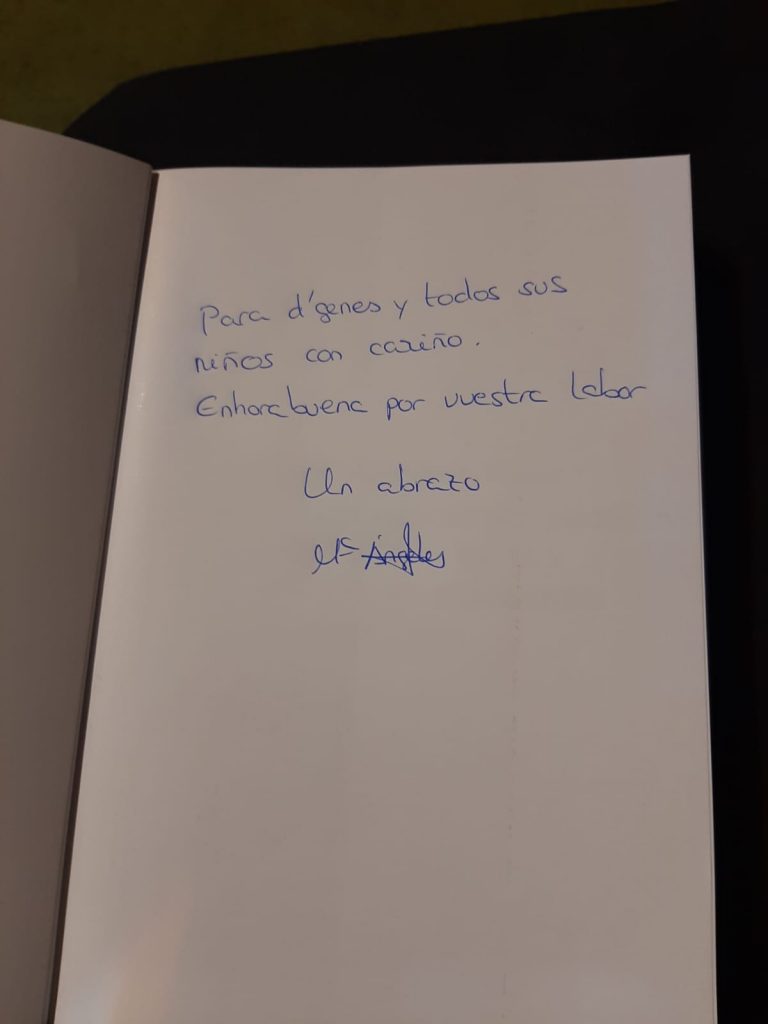 Para d'genes y todos sus
niños con cariño.
Enhorabuena por vuestra labor
Un abrazo
Mª Ángeles